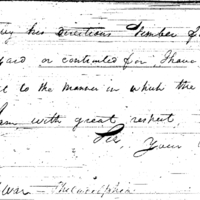 his directions number of
or contracted for, I have
to the manner in which the
am with great respect
Sir
Your
War — Philadelphia